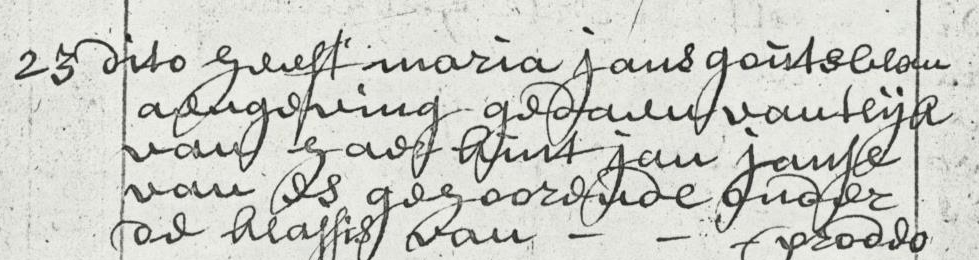 23 dito heeft maria jans goutsblau
aengeving gedaen vant lijk
van haer kint jan janse
van es gehoorende onder
de klassis van - - - proddo